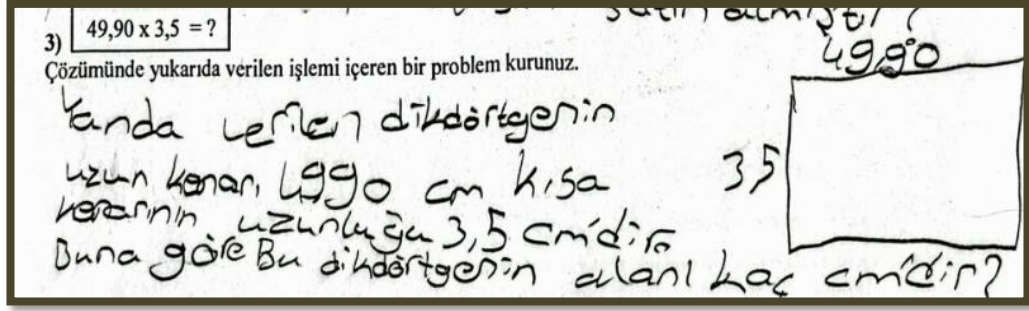 satın almıştı?
3) 49,90 x 3,5 = ?
Çözümünde yukarıda verilen işlemi içeren bir problem kurunuz.
49,90
Yanda verilen dikdörtgenin
uzun kenarı 49,90 cm kısa
3,5
kenarının uzunluğu 3,5 cm'dir.
Buna göre Bu dikdörtgenin alanı kaç cm'dir?